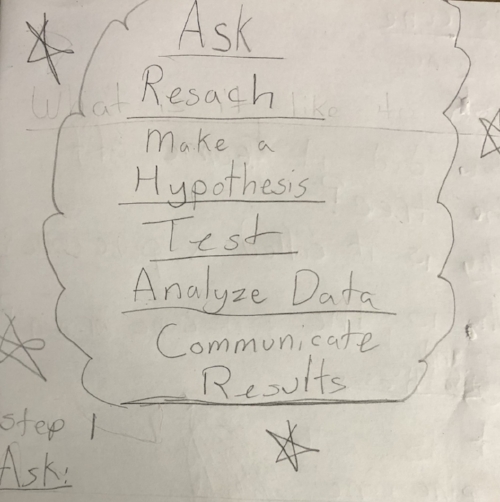 Ask
Resach
Make a
Hypothesis
Test
Analyze Data
Communicate
Results
Step 1
Ask: